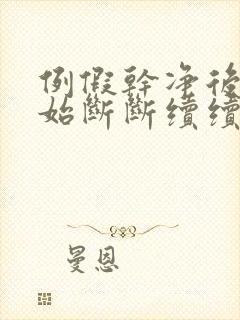 例假幹净後
始斷斷續續
曼恩